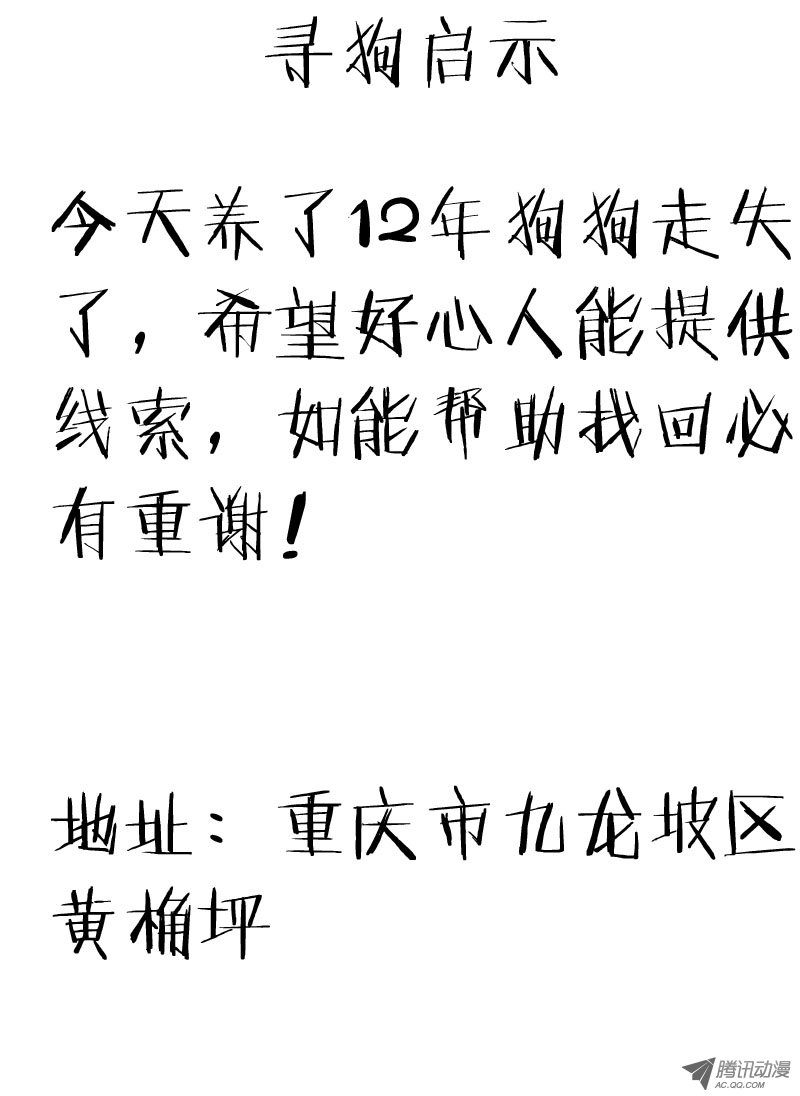 寻狗启示
今天养了12年狗狗走失
了，希望好心人能提供
线索，如能帮助找回必
有重谢！
地址：重庆市九龙坡区
黄桷坪
腾讯动漫
AC.QQ.COM